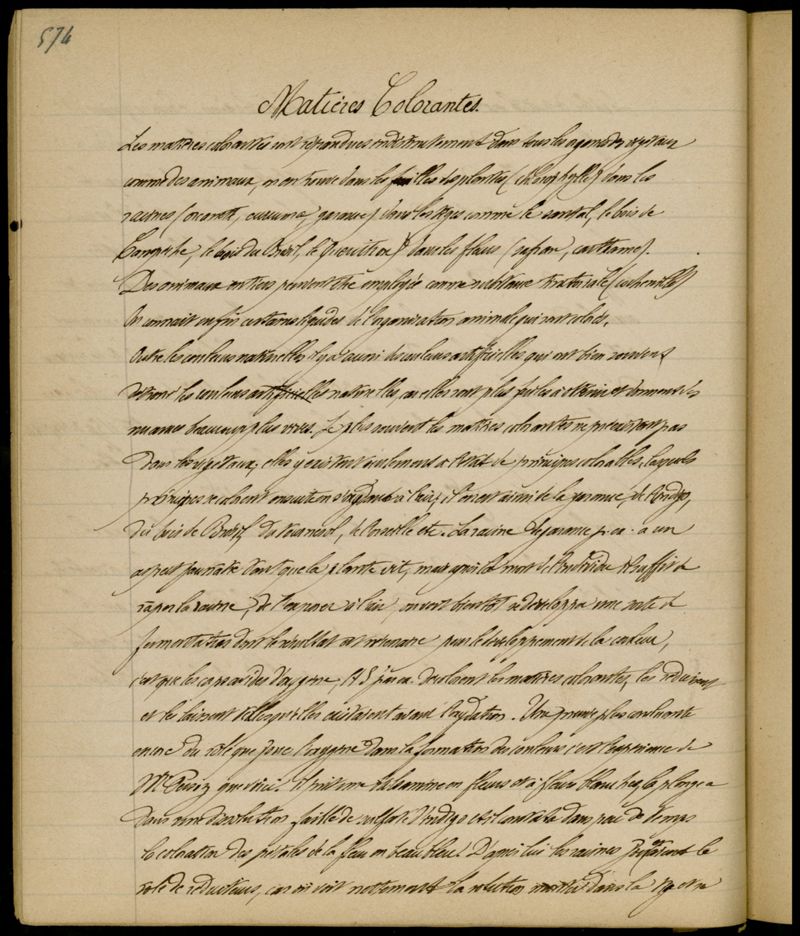 574
Matières Colorantes.
Les matières colorantes sont répandues indistinctement dans tous les organes des végétaux
comme des animaux, on en trouve dans les feuilles des plantes (chlorophylle) dans les
racines (orcanette, curcuma, garance) dans les tiges comme le santal, le bois de
Campêche, le bois du Brésil, le Quercitron) dans les fleurs (safran, carthame).
Des animaux entiers peuvent être employés comme matière tinctoriale (cochenille)
On connait enfin certains liquides de l'organisation animale qui sont colorés.
Outre les couleurs naturelles il y a aussi des couleurs artificielles qui ont bien souvent
détroné les couleurs naturelles, car elles sont plus faciles à obtenir et donnent des
nuances beaucoup plus vives. Le plus souvent les matières colorantes ne préexistent pas
dans les végétaux, elles y existent seulement à l'état de principes colorables, lesquels
principes se colorent ensuite en s'oxydant à l'air, il en est ainsi de la garance, de l'indigo,
du bois de Brésil, du tournesol, de l'orseille etc. La racine de garance p. ex. a un
aspect jaunâtre tant que la plante vit, mais quand la mort de l'individu il suffit de
râper la racine, de l'exposer à l'air, on voit bientôt se développer une sorte de
fermentation dont le résultat est nécessaire pour le développement de la couleur,
c'est que les corps avides d'oxygène, H S p. ex. décolorent les matières colorantes, les réduisent
et les laissent telles qu'elles existaient avant l'oxydation. Une preuve plus concluante
encore du rôle que joue l'oxygène dans la formation des couleurs c'est l'expérience de
Mr que voici. Il prit une balsamine en fleurs et à fleurs blanches, la plongea
dans une dissolution faible de sulfate d'indigo et il constata dans peu de temps
la coloration des pétales de la fleur en beau bleu. D'après lui les racines joueraient le
rôle de réducteurs, car on voit nettement la solution dans la